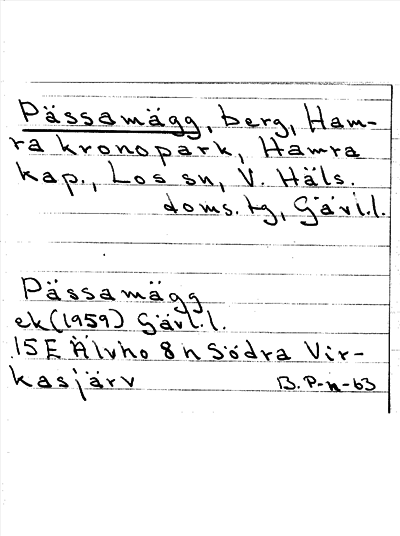 Pässamägg, berg, Ham-
ra kronopark, Hamra
kap., Los sn, V. Häls.
doms. tg, Gävl.l.
Pässamägg
ek (1959) Gävl.l.
15E Älvho 8h Södra Vir-
kasjärv B. P-n-63